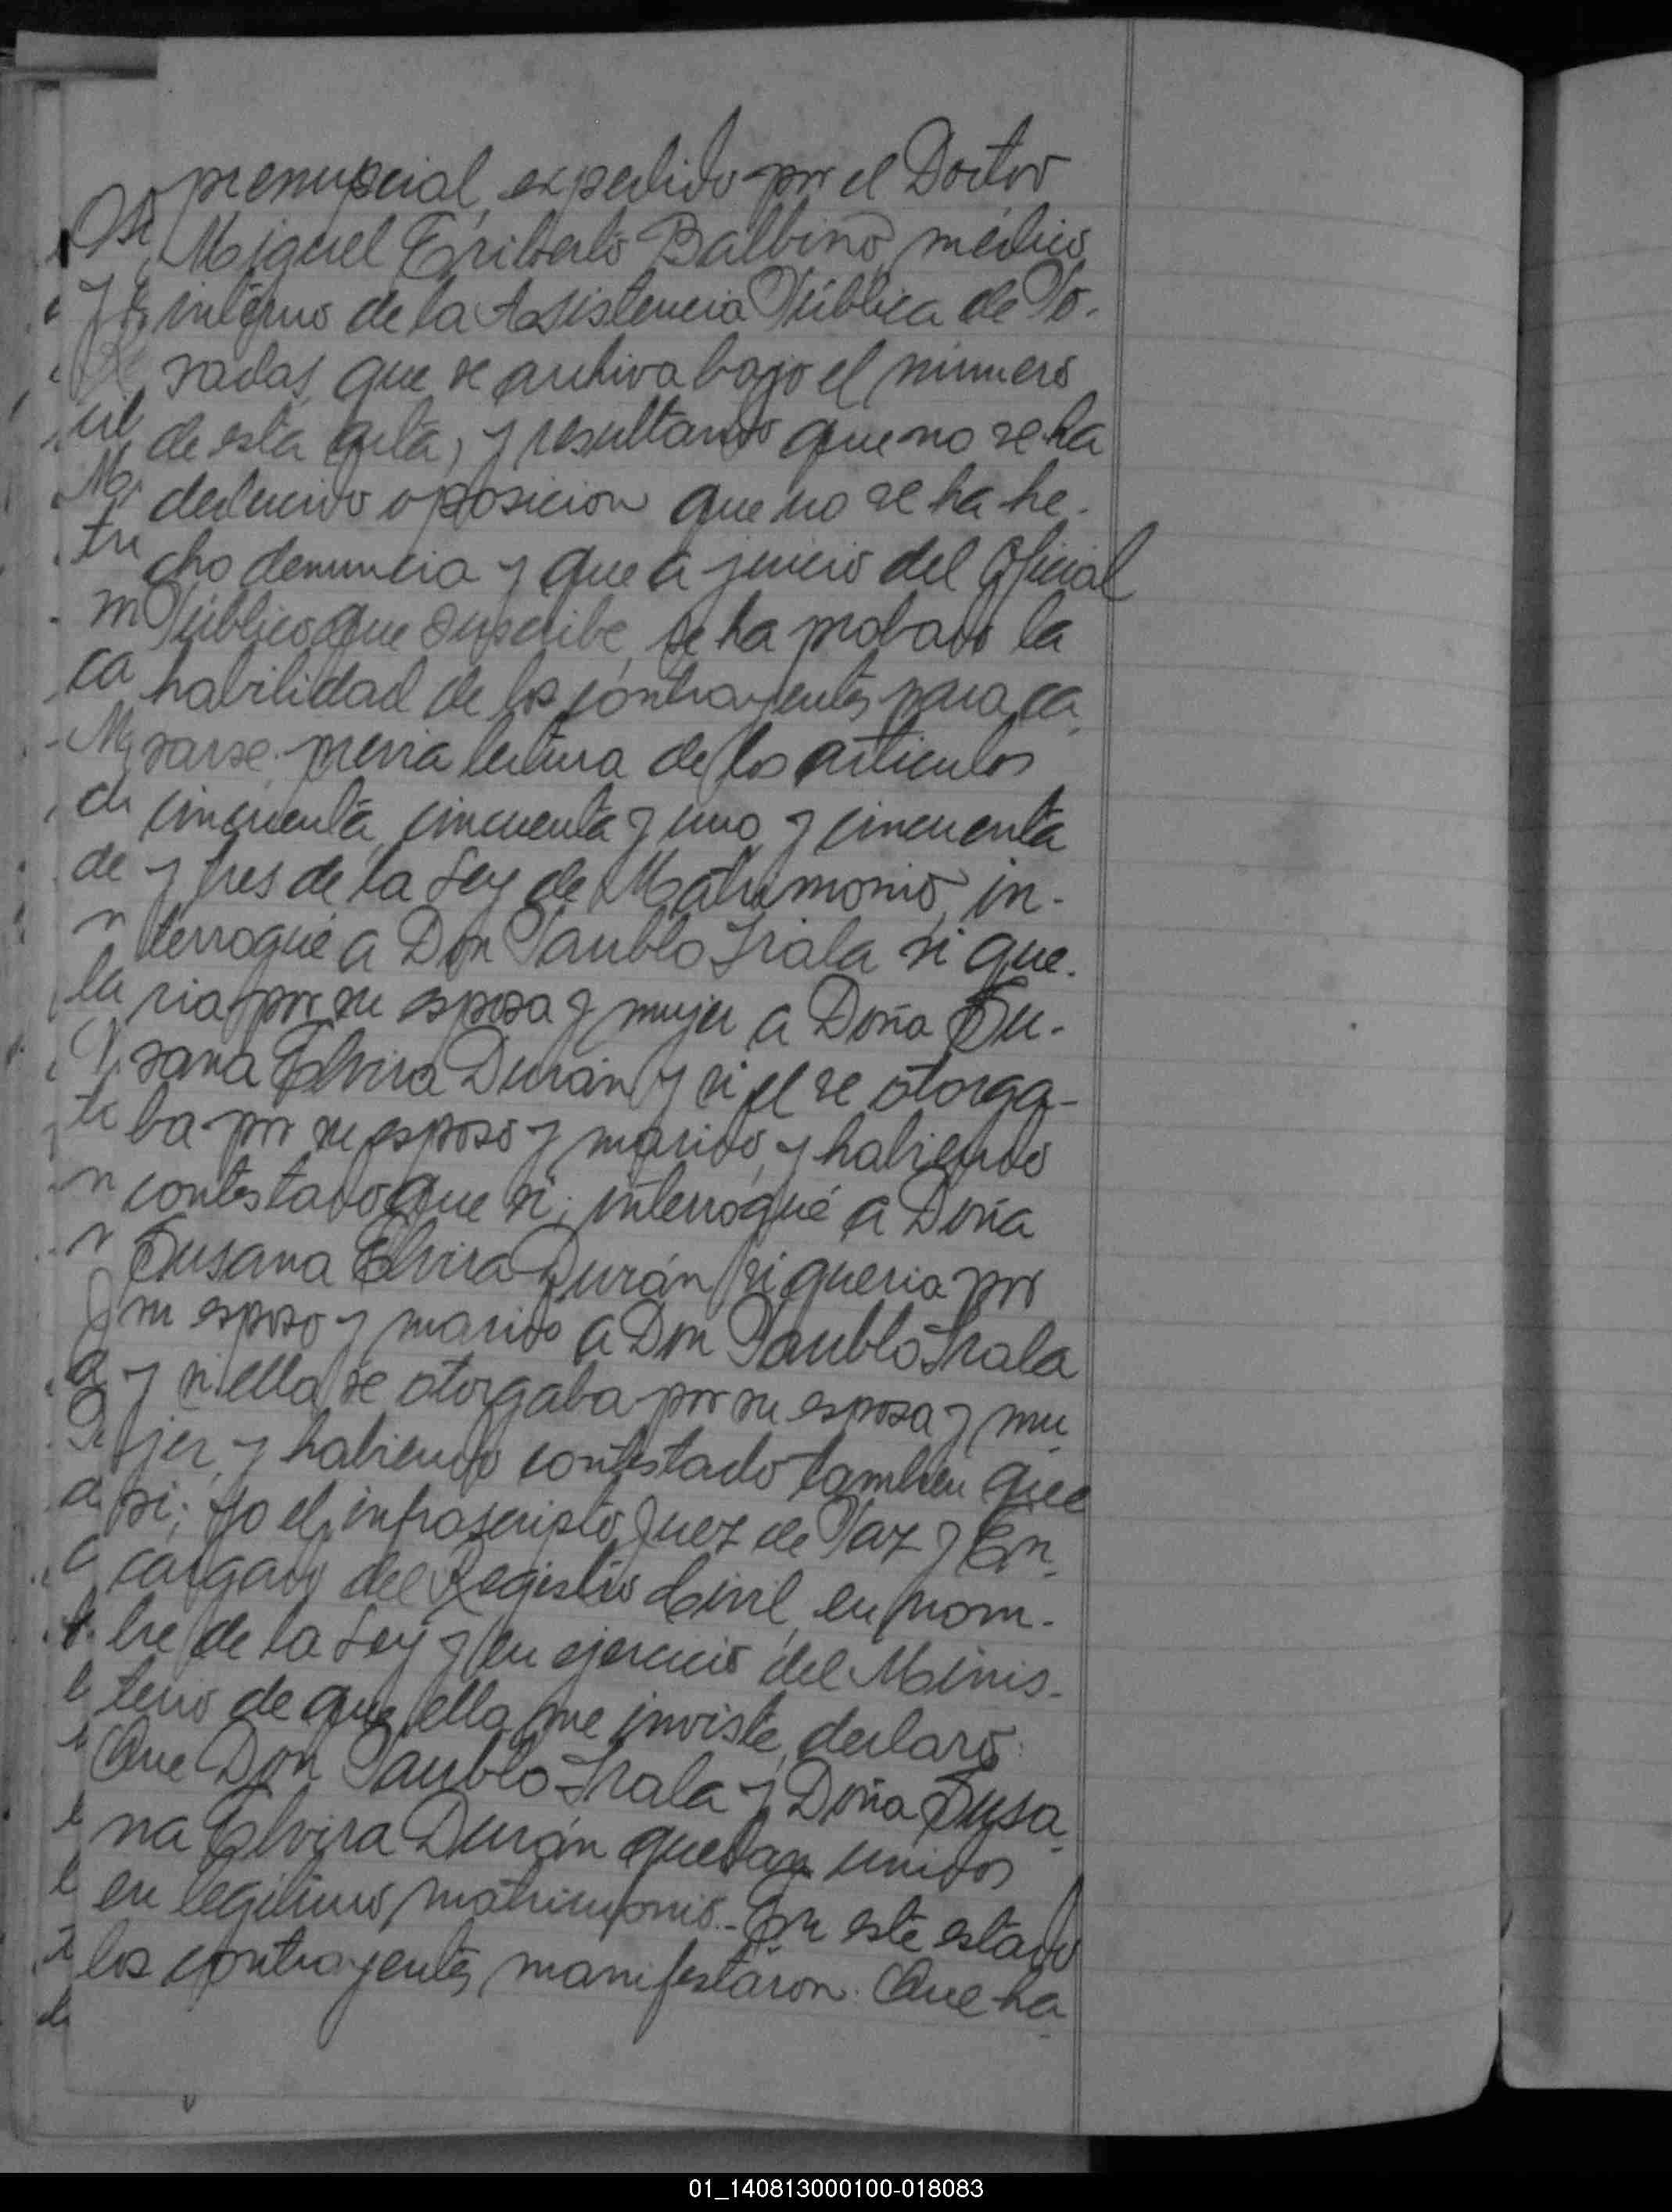 prenupcial, expedido por el Doctor
Miguel Eriberto Balbino, médico
interno de la Asistencia Pública de Po-
sadas, que se archiva bajo el número
de esta acta, y resultando que no se ha
deducido oposicion que no se ha he-
cho denuncia y que a juicio del Oficial
Público que suscribe, se ha probado la
habilidad de los contrayentes para ca-
sarse: previa lectura de los articulos
cincuenta, cincuenta y uno, y cincuenta
y tres de la Ley de Matrimonio, in-
terrogué a Don Paublo Irala si que-
ria por su esposa y mujer a Doña Su-
sana Elvira Durán y si el se otorga-
ba por su esposo y marido, y habiendo
contestado que si; interrogué a Doña
Susana Elvira Durán si queria por
su esposo y marido a Don Paublo Irala
y si ella se otorgaba por su esposa y mu-
jer, y habiendo contestado tambien que
si; Yo el infrascripto Juez de Paz y En-
cargado del Registro Civil, en nom-
bre de la Ley y en ejercicio del Minis-
terio de que ella me inviste, declaro:
Que Don Paublo Irala y Doña Susa-
na Elvira Durán quedan unidos
en legitimo matrimonio.- En este estado
los contrayentes manifestaron: Que ha-
01_140813000100-018083